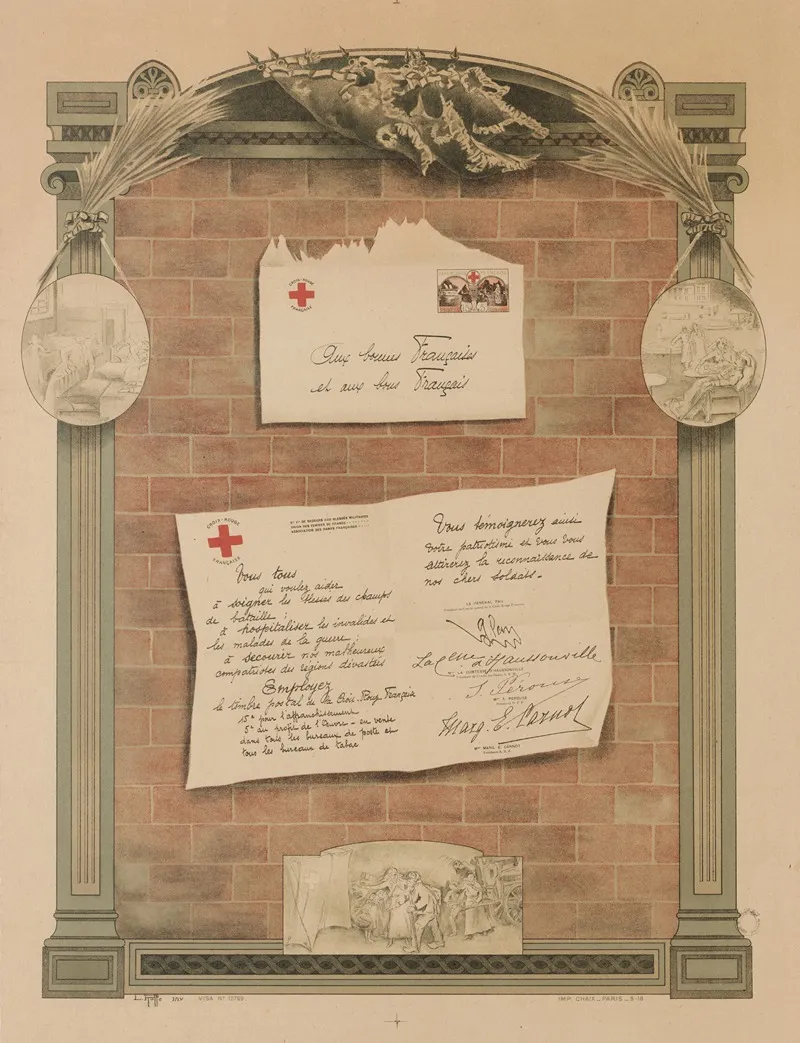 CROIX-ROUGE
FRANÇAISE
Aux bonnes Françaises
et aux bons Français
CROIX-ROUGE
FRANÇAISE
Sté Fse DE SECOURS AUX BLESSÉS MILITAIRES
UNION DES FEMMES DE FRANCE
ASSOCIATION DES DAMES FRANÇAISES
Vous tous
qui voulez aider
à soigner les blessés des champs
de bataille ;
à hospitaliser les invalides et
les malades de la guerre ;
à secourir nos malheureux
compatriotes des régions dévastées
Employez
le timbre postal de la Croix-Rouge Française
15c pour l'affranchissement
5c au profit de l'Œuvre - en vente
dans tous les bureaux de poste et
tous les bureaux de tabac
Vous témoignerez ainsi
votre patriotisme et vous vous
attirerez la reconnaissance de
nos chers soldats.
LE GÉNÉRAL PAU
Gl Pau
La Ctesse d'Haussonville
LA COMTESSE D'HAUSSONVILLE
S. Pérouse
Mme S. PÉROUSE
Marg. E. Carnot
Mme MARG. E. CARNOT
VISA No 12799
IMP. CHAIX_PARIS_5-18